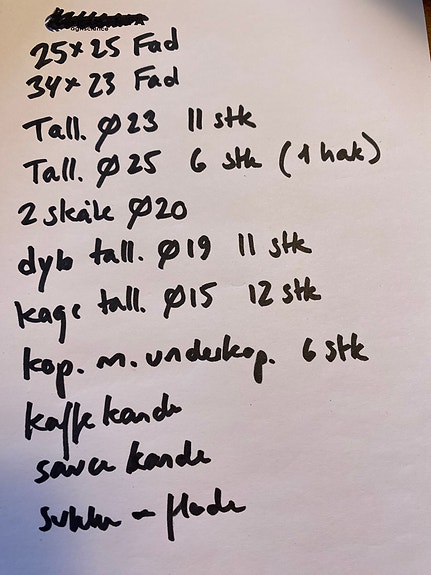 25×25 Fad
34×23 Fad
Tall. Ø23 11 stk
Tall. Ø25 6 stk (1 hak)
2 skåle Ø20
dyb tall. Ø19 11 stk
kage tall. Ø15 12 stk
kop. m. underkop. 6 stk
kaffekande
sauce kande
sukker - fløde